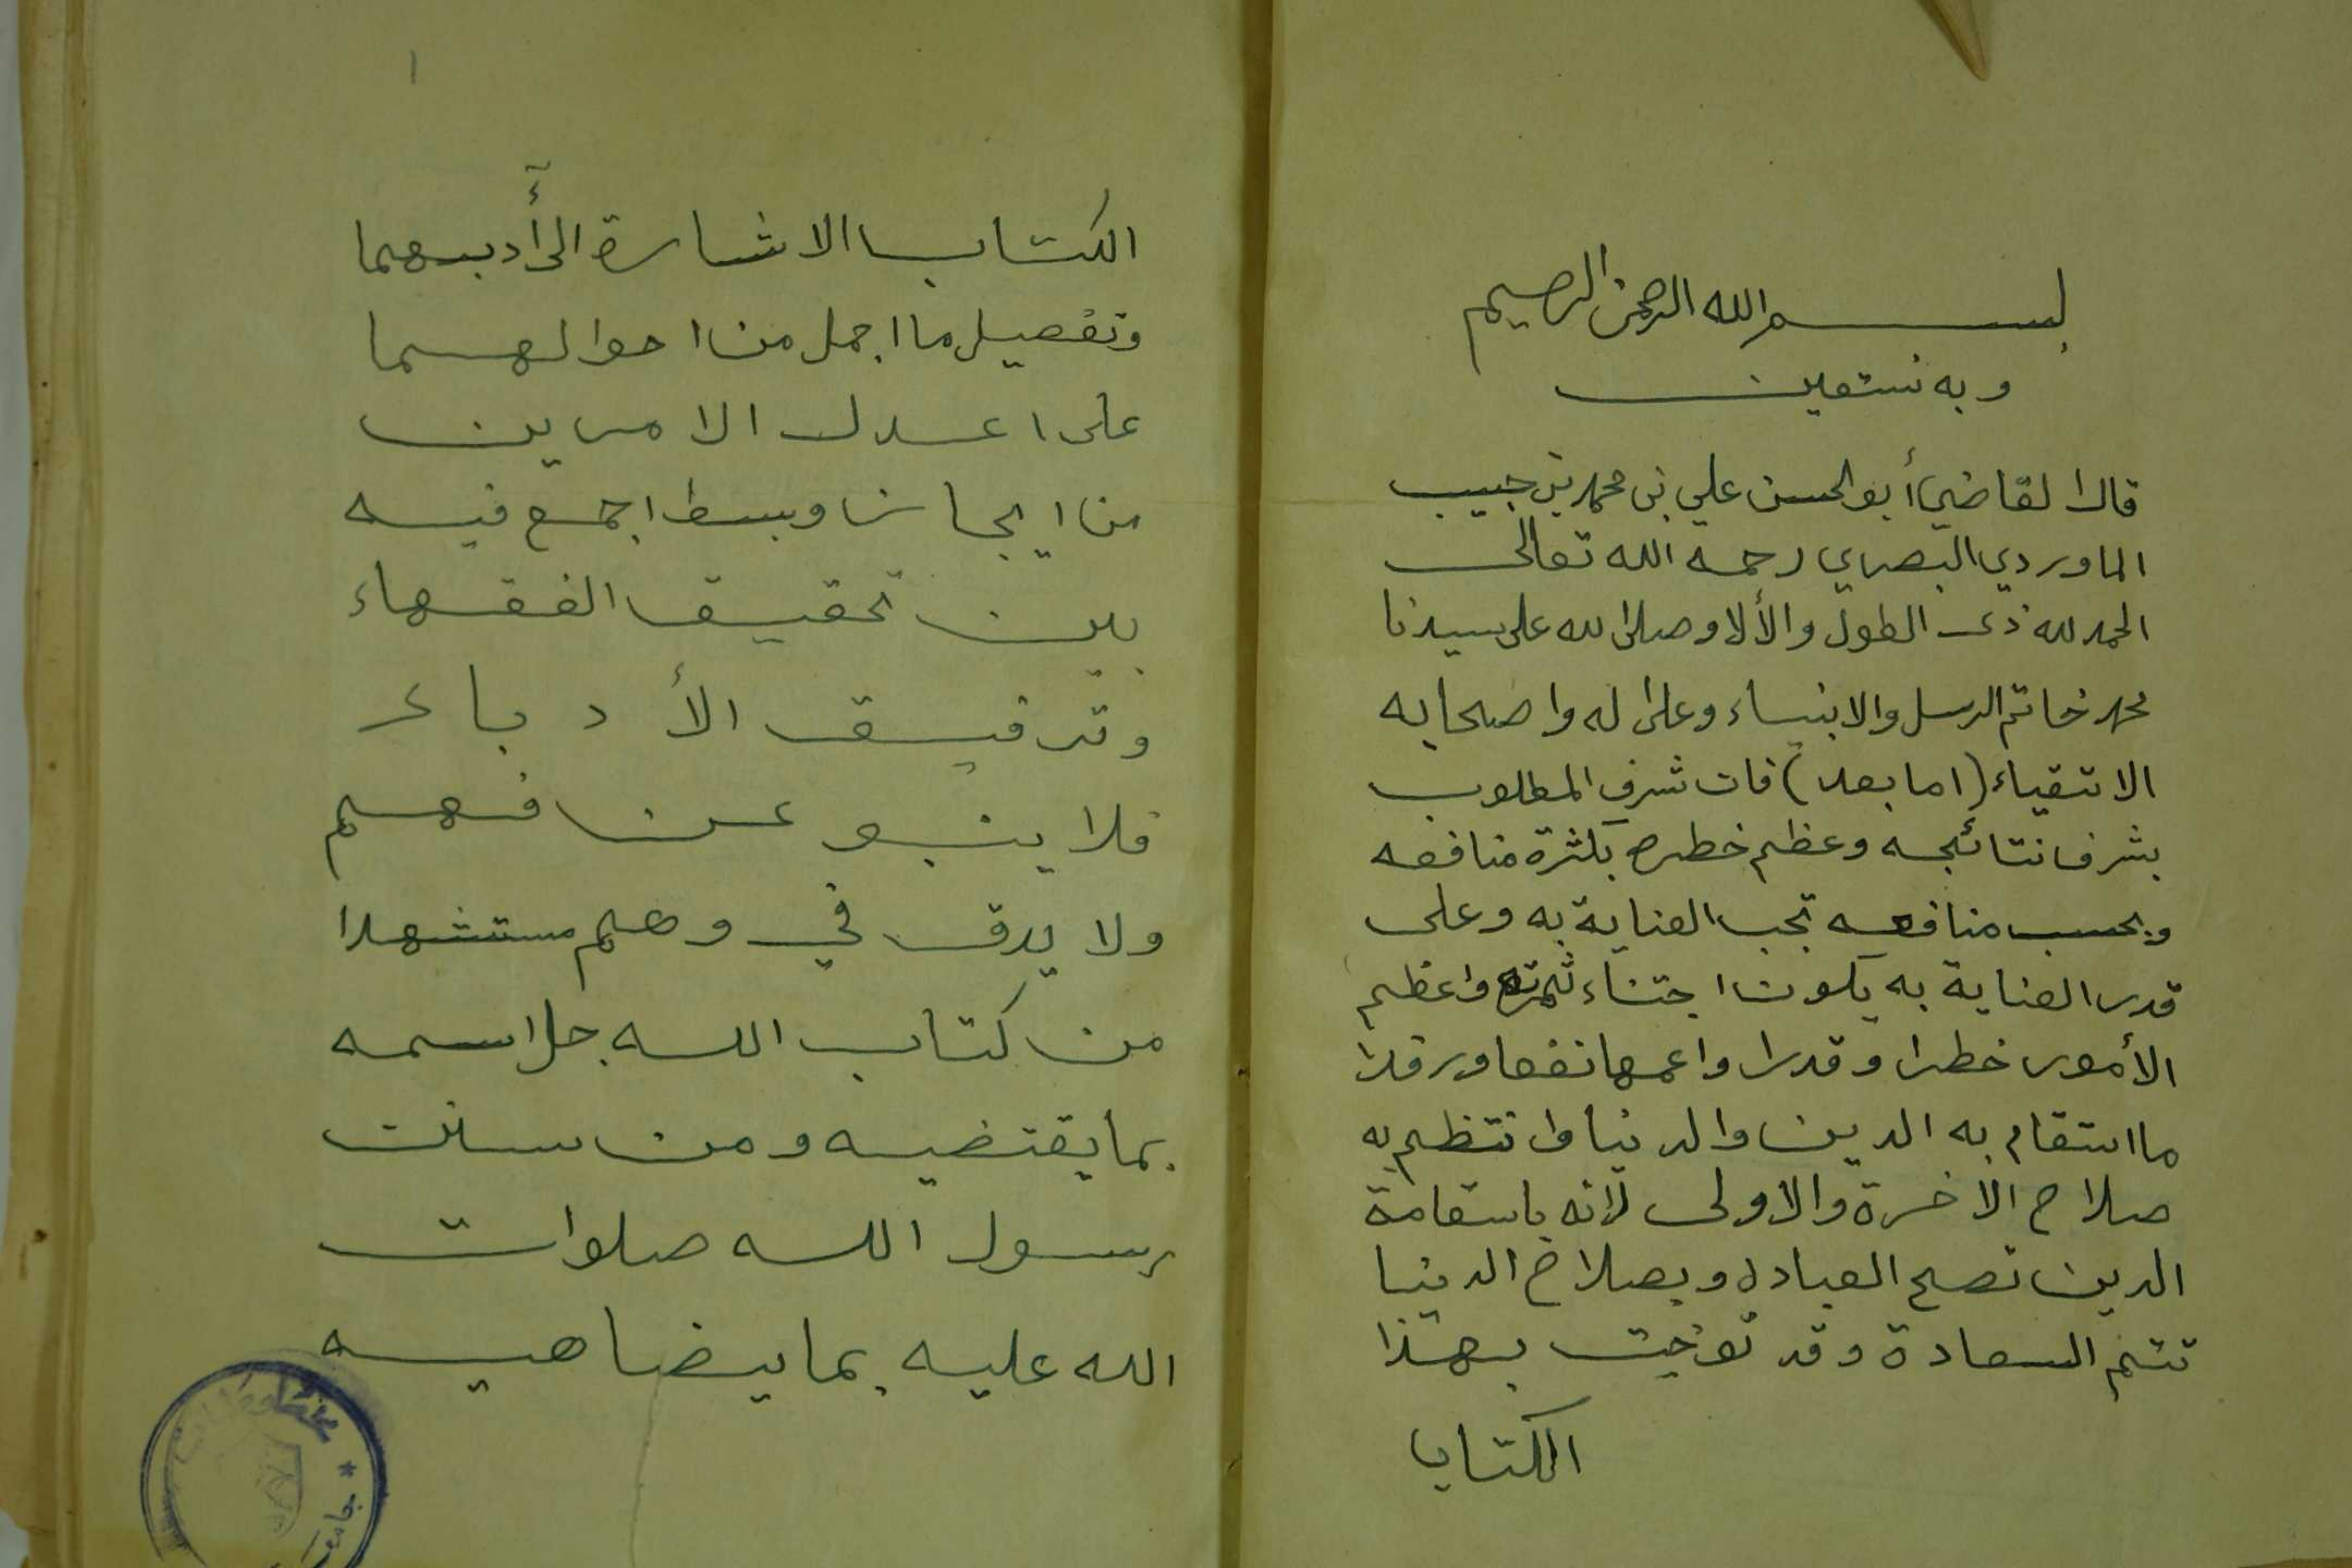 بسم الله الرحمن الرحيم
وبه نستعين
قال القاضي أبو الحسن علي بن محمد بن حبيب
الماوردي البصري رحمه الله تعالى
الحمد لله ذى الطول والألا وصلى الله على سيدنا
محمد خاتم الرسل والانبياء وعلى اله واصحابه
الاتقياء (اما بعد) فان شرف المطلوب
بشرف نتائجه وعظم خطره بكثرة منافعه
وبحسب منافعه تجب العناية به وعلى
قدر العناية به يكون اجتناء ثمرته واعظم
الأمور خطرا وقدرا واعمها نفعا ورفدا
ما استقام به الدين والدنيا وانتظم به
صلاح الاخرة والاولى لانه باستقامة
الدين تصح العبادة وبصلاح الدنيا
تتم السعادة وقد توخيت بهذا
الكتاب
١
الكتاب الاشارة الى أدبهما
وتفصيل ما اجمل من احوالهما
على اعدل الامرين
من ايجاز وبسط اجمع فيه
بين تحقيق الفقهاء
وترقيق الأدباء
فلا ينبو عن فهم
ولا يدق في وهم مستشهدا
من كتاب الله جل اسمه
بما يقتضيه ومن سنن
رسول الله صلوات
الله عليه بما يضاهيه
مخطوطات
* جامعة